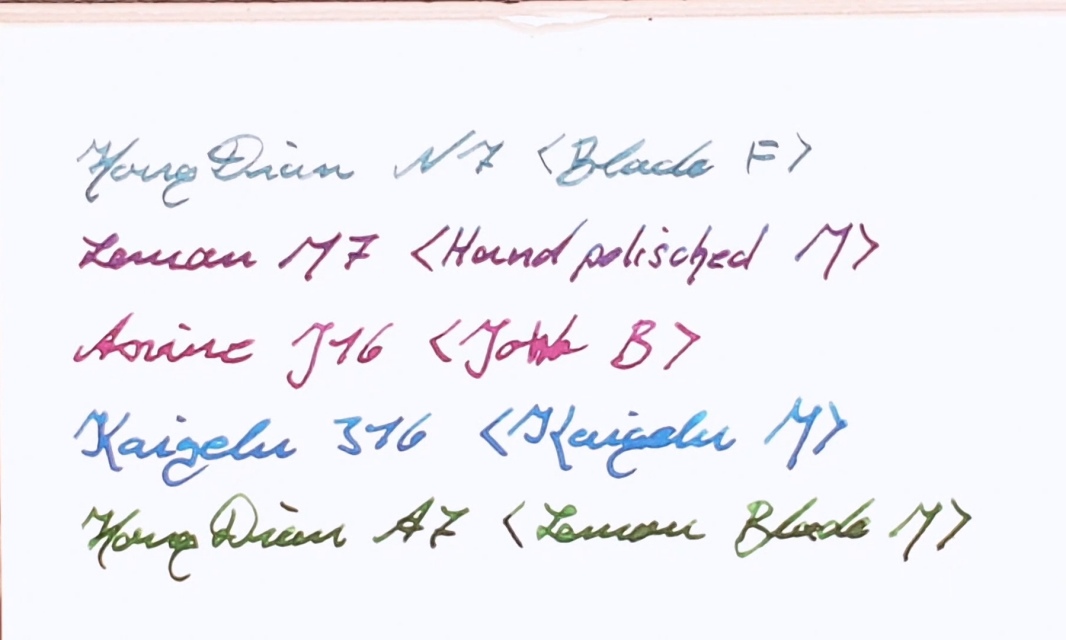 HongDian N7 <Blade F>
Leman M7 <Hand polisched M>
Asvine J16 <Jowo B>
Kaigelu 316 <Kaigelu M>
HongDian A7 <Leman Blade M>